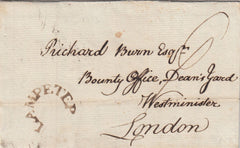 Richard Burn Esqr.
Bounty Office, Dean's Yard
Westminister
London
LAMPETER